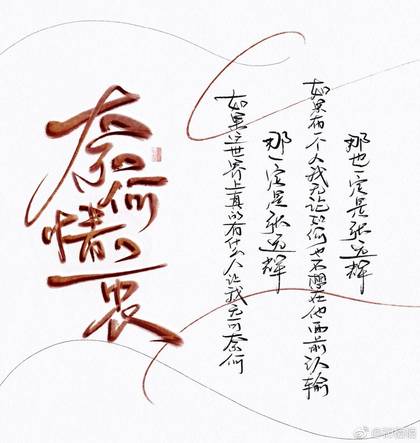 奈何
情一衷
如果这世界上真的有什么人让我无可奈何
那一定是张远辉
如果有一个人我无论如何也不愿在他面前认输
那也一定是张远辉